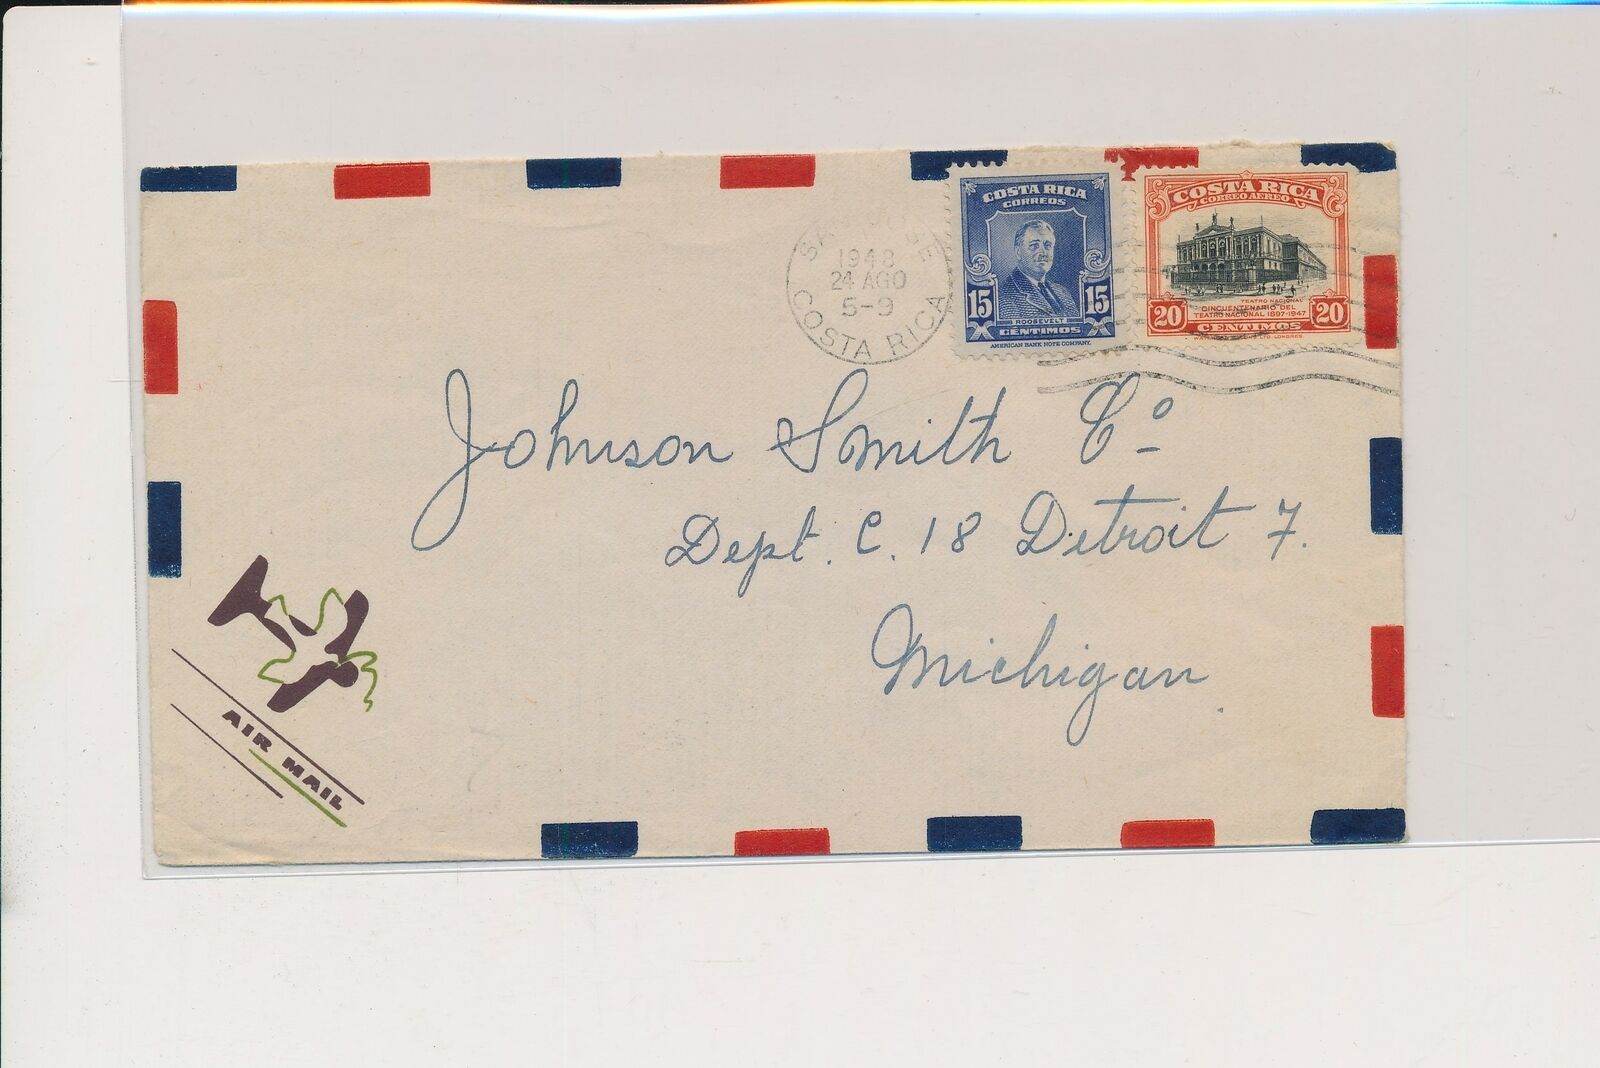 SAN JOSE
1948
24 AGO
5-9
COSTA RICA
COSTA RICA
CORREOS
15 15
ROOSEVELT
CÉNTIMOS
AMERICAN BANK NOTE COMPANY.
COSTA RICA
CORREO AEREO
TEATRO NACIONAL
CINCUENTENARIO DEL
TEATRO NACIONAL 1897-1947
20 20
CENTIMOS
LTD. LONDRES.
Johnson Smith Cº
Dept. C. 18 Detroit 7.
Michigan.
AIR MAIL